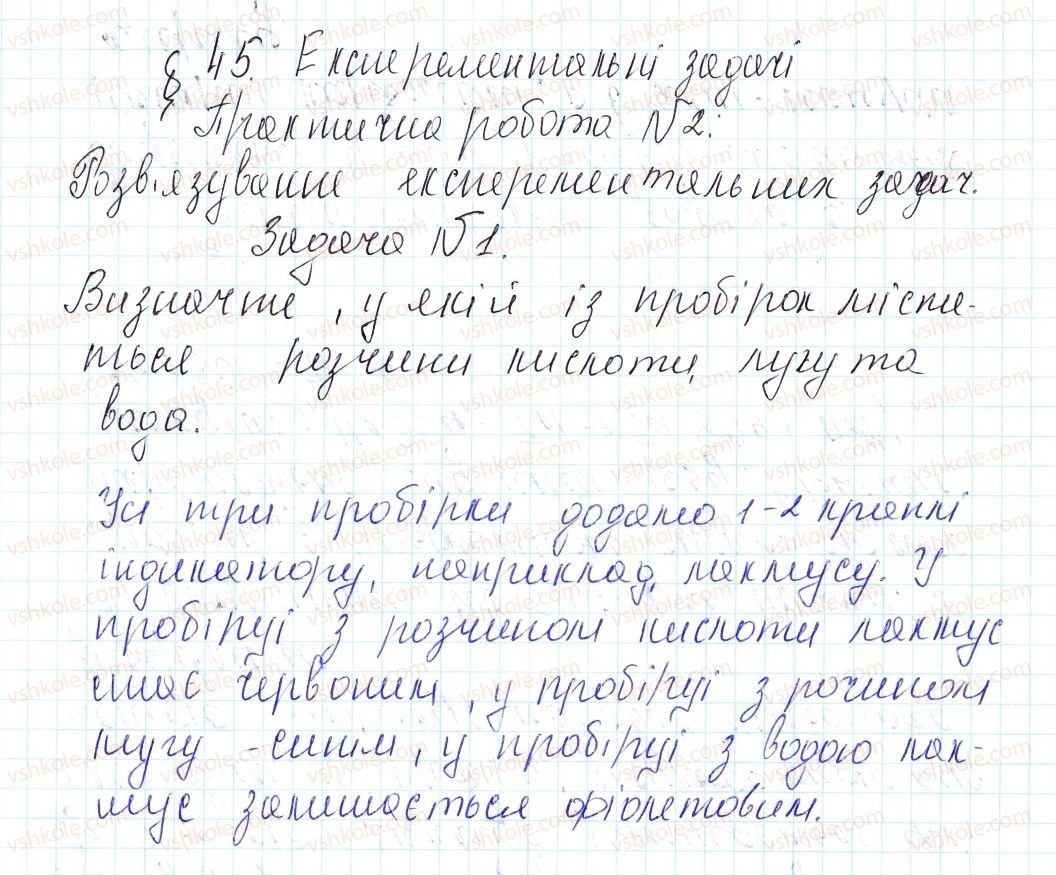 § 45. Експерементальні задачі
Практична робота №2.
Розв'язування експерементальних задач.
Задача №1.
Визначте, у якій із пробірок місти-
ться розчини кислоти, лугу та
вода.
Усі три пробірки додамо 1-2 краплі
індикатору, наприклад, лакмусу. У
пробірці з розчином кислоти лакмус
стає червоним, у пробірці з рочином
лугу - синім, у пробірці з водою лак-
мус залишається фіолетовим.